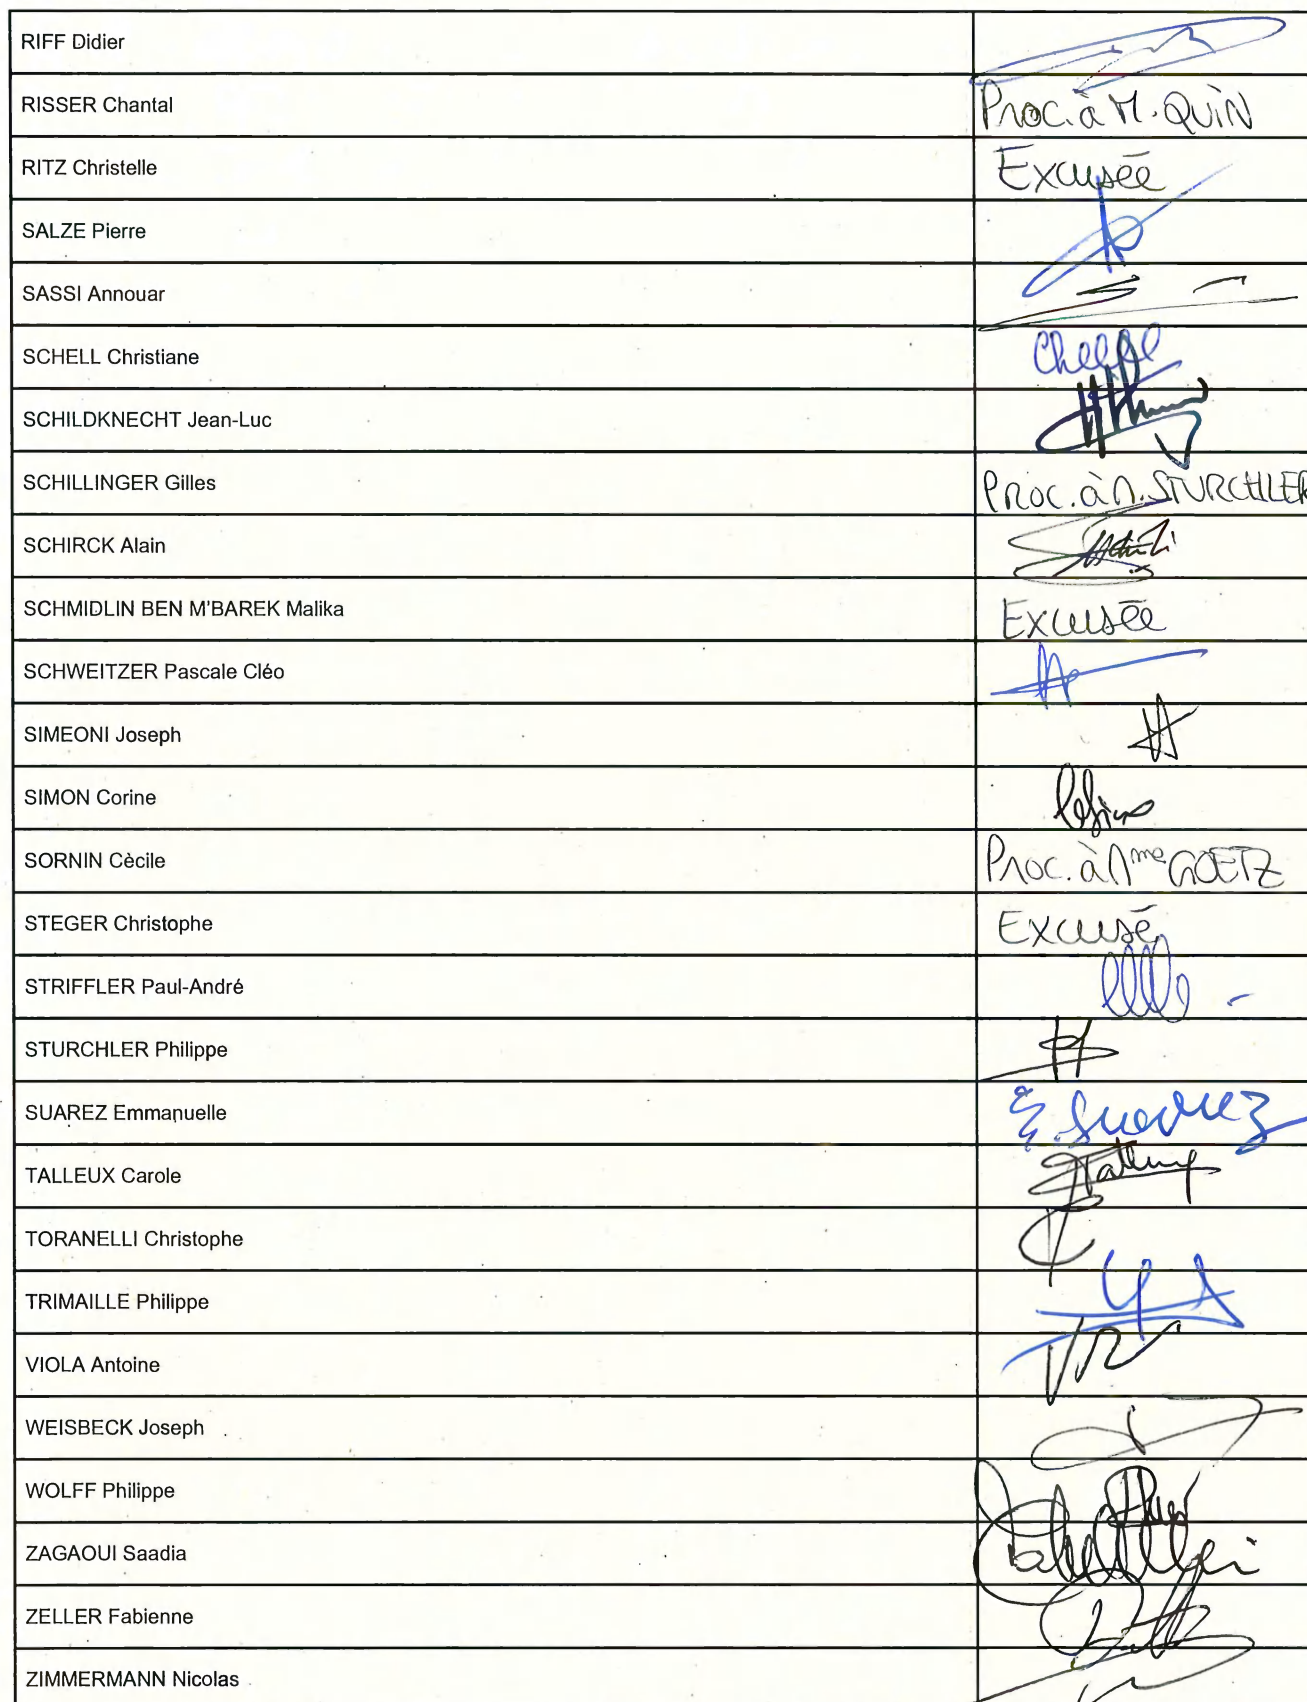 RIFF Didier
RISSER Chantal Proc. à M. QUIN
RITZ Christelle Excusée
SALZE Pierre
SASSI Annouar
SCHELL Christiane
SCHILDKNECHT Jean-Luc
SCHILLINGER Gilles Proc. à M. STURCHLER
SCHIRCK Alain
SCHMIDLIN BEN M'BAREK Malika Excusée
SCHWEITZER Pascale Cléo
SIMEONI Joseph
SIMON Corine
SORNIN Cècile Proc. à Mme GOETZ
STEGER Christophe Excusé
STRIFFLER Paul-André
STURCHLER Philippe
SUAREZ Emmanuelle E. Suarez
TALLEUX Carole
TORANELLI Christophe
TRIMAILLE Philippe
VIOLA Antoine
WEISBECK Joseph
WOLFF Philippe
ZAGAOUI Saadia
ZELLER Fabienne
ZIMMERMANN Nicolas